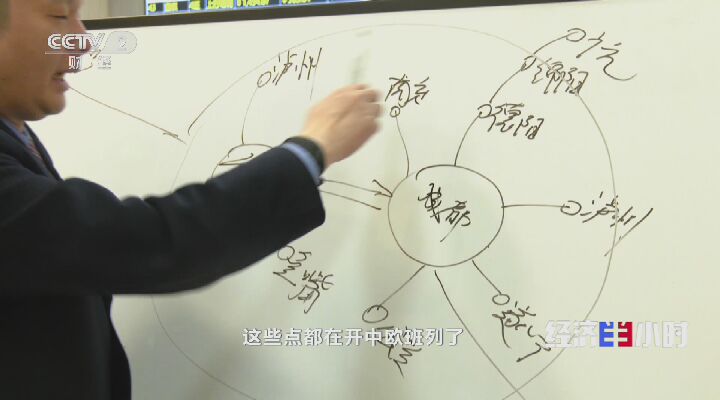 CCTV 2
财经
泸州
南充
广元
绵阳
德阳
成都
泸州
宜宾
遂宁
这些点都在开中欧班列了
经济半小时